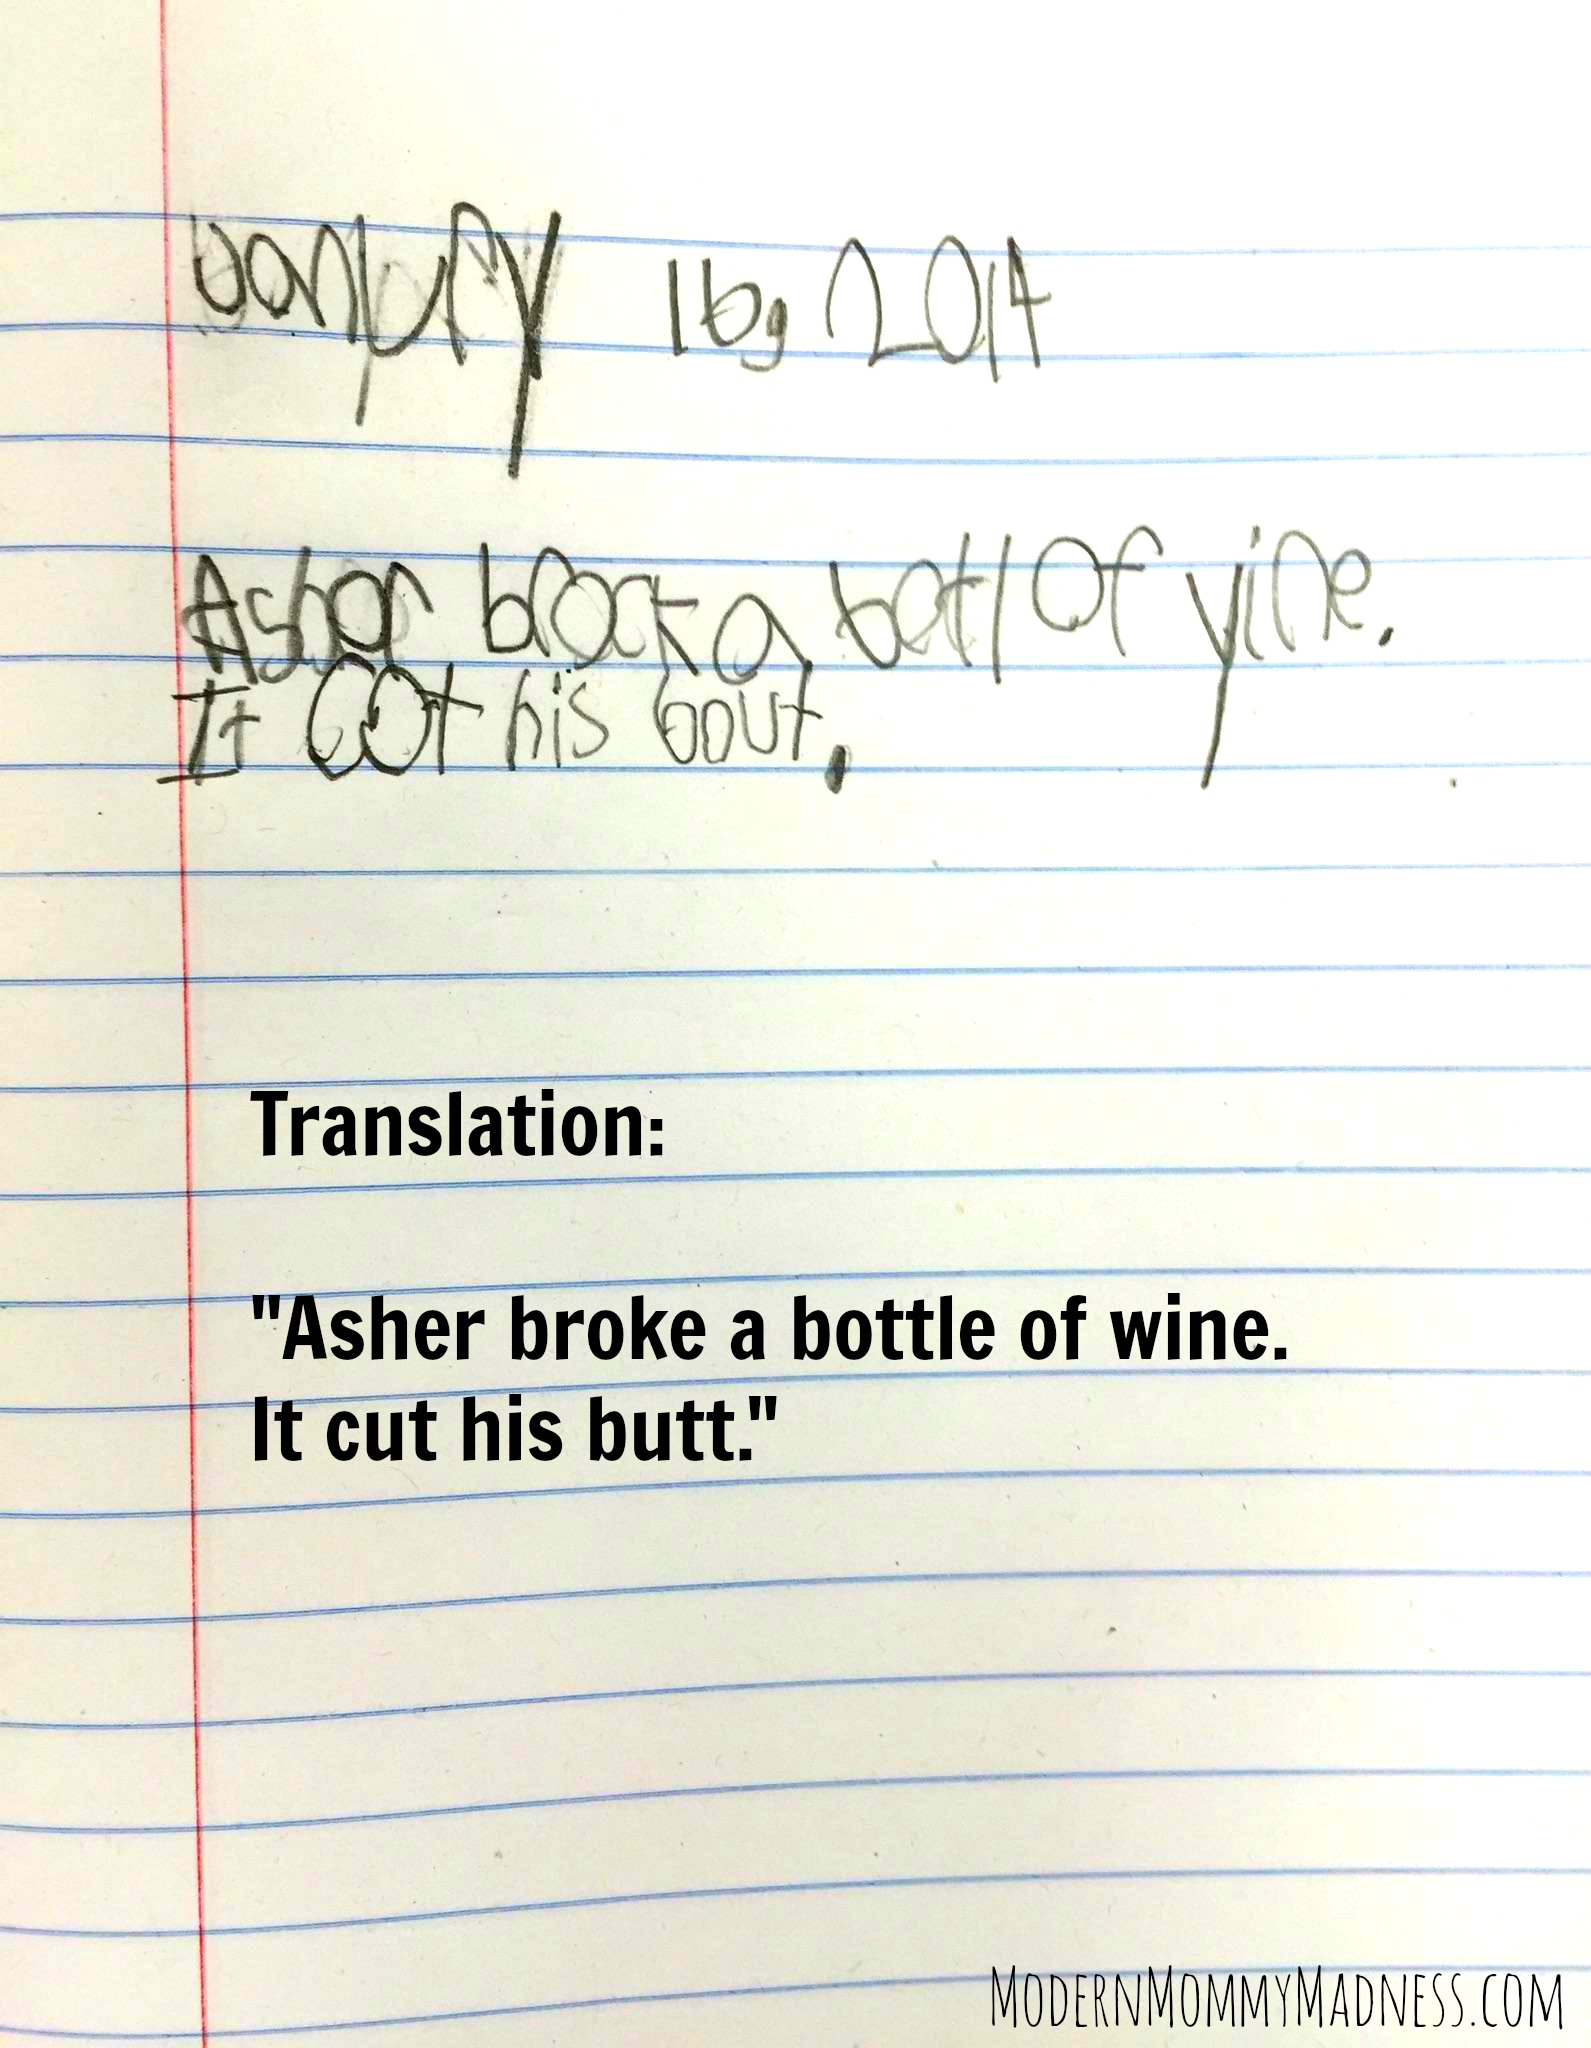 Janury 16, 2014
Asher brock a botl of yine.
It cot his bout.
Translation:
"Asher broke a bottle of wine.
It cut his butt."
ModernMommyMadness.com